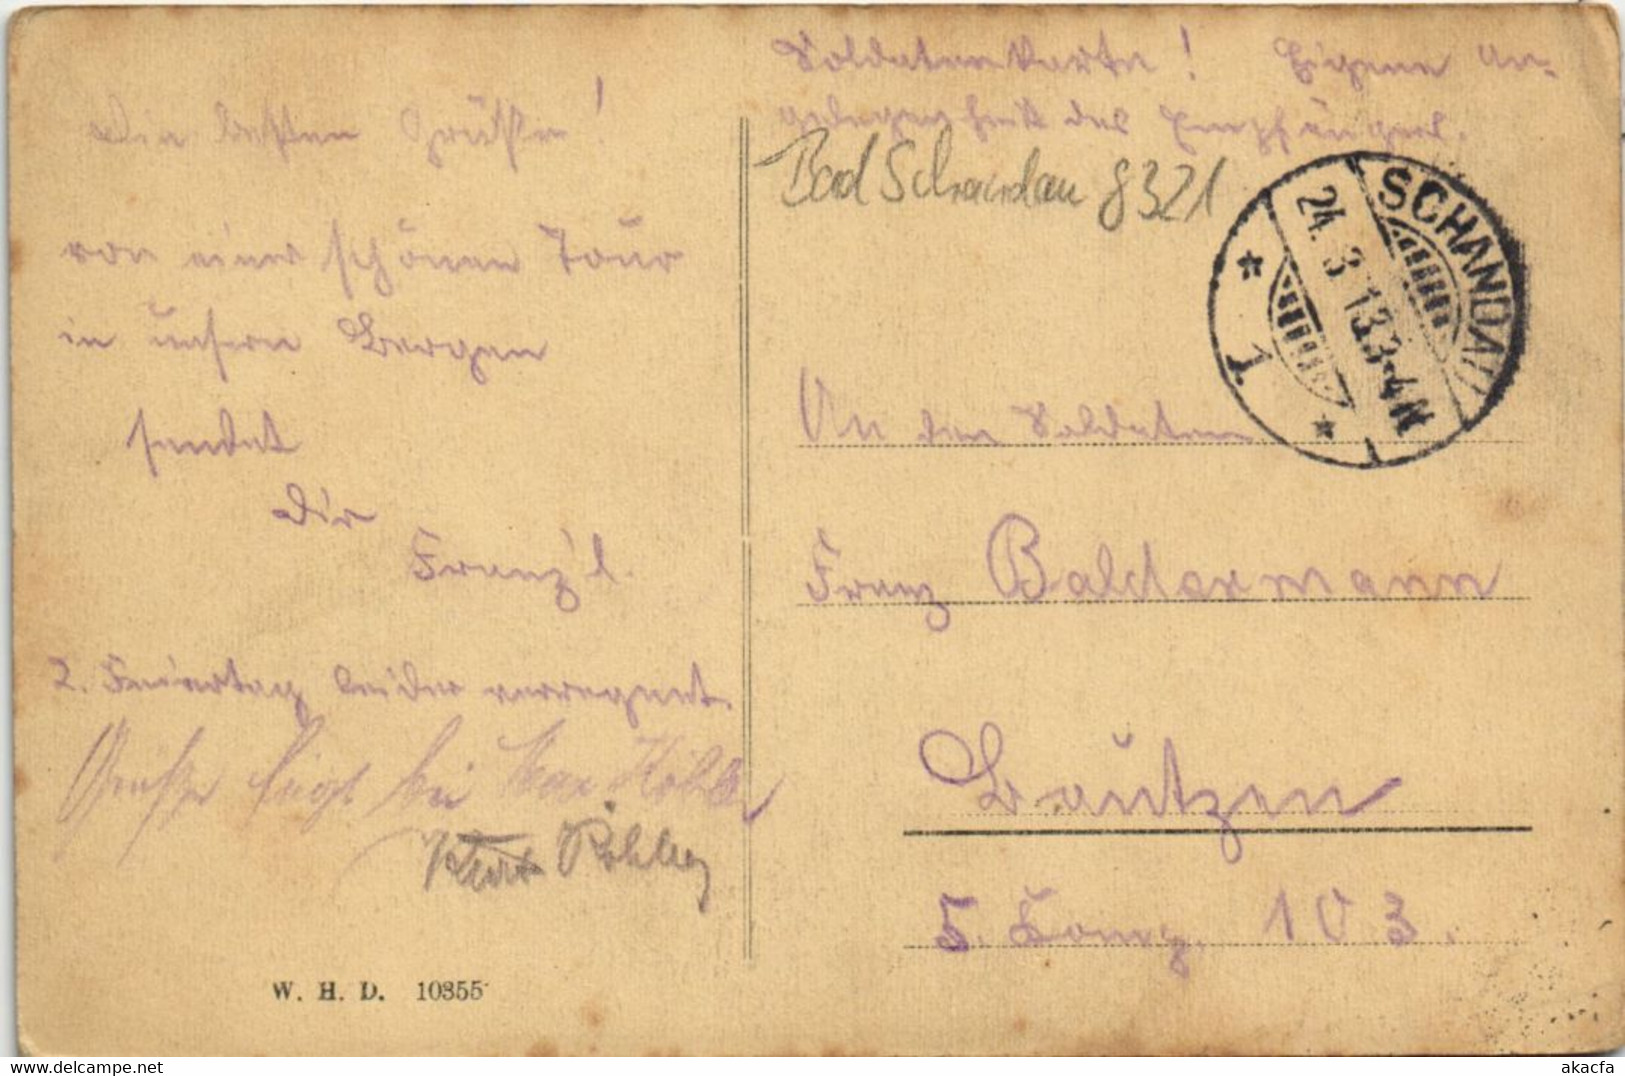 Die besten Grüße!
von einer schönen Tour
in unsern Bergen
sendet
Dir
Franz'l.
2. Feiertag leider verregnet.
Grüße bei
Kurt
W. H. D. 10355
Soldatenkarte! Eigene An-
gelegenheit des Empfängers.
Bad Schandau 8321
SCHANDAU
24. 3. 13. 3-4 N
* 1 *
An den Soldaten
Franz Baldermann
Bautzen
5. Komp. 103.
akacfa